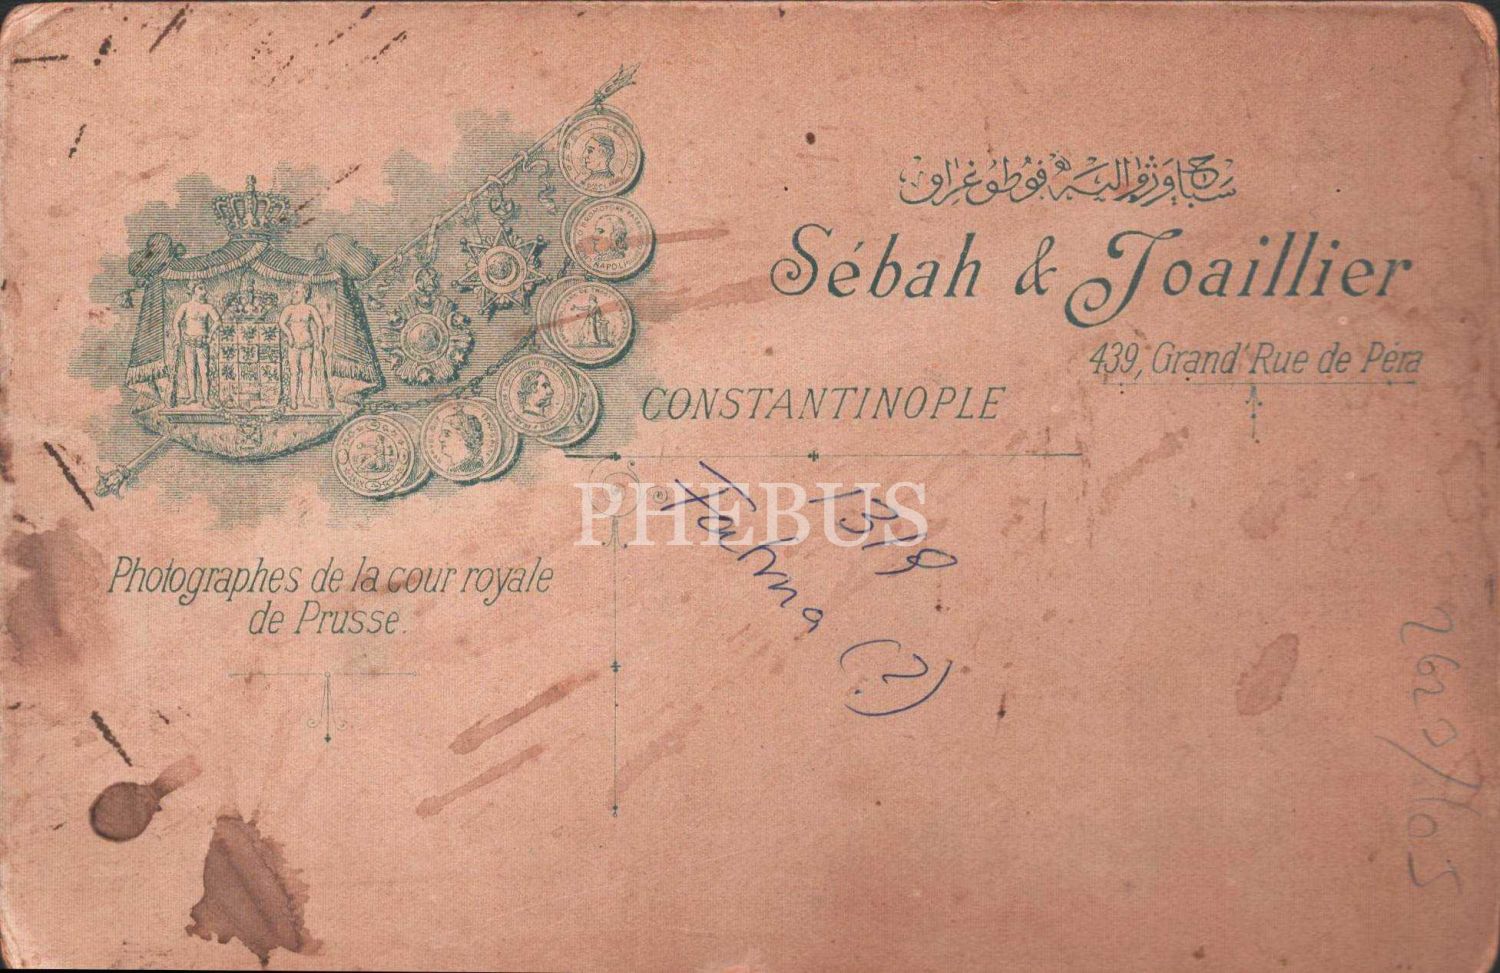 سباح وژواليه فوطوغراف
Sébah & Joaillier
439, Grand' Rue de Péra
CONSTANTINOPLE
Photographes de la cour royale
de Prusse.
PHEBUS
(?)